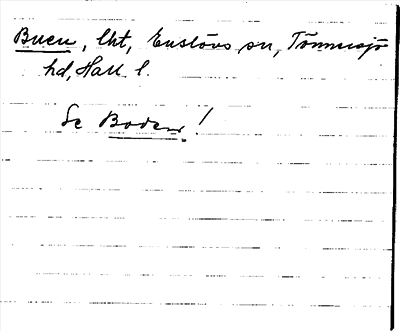 Buen, lht, Enslövs sn, Tönnersjö
hd, Hall. l.
Se Boden!